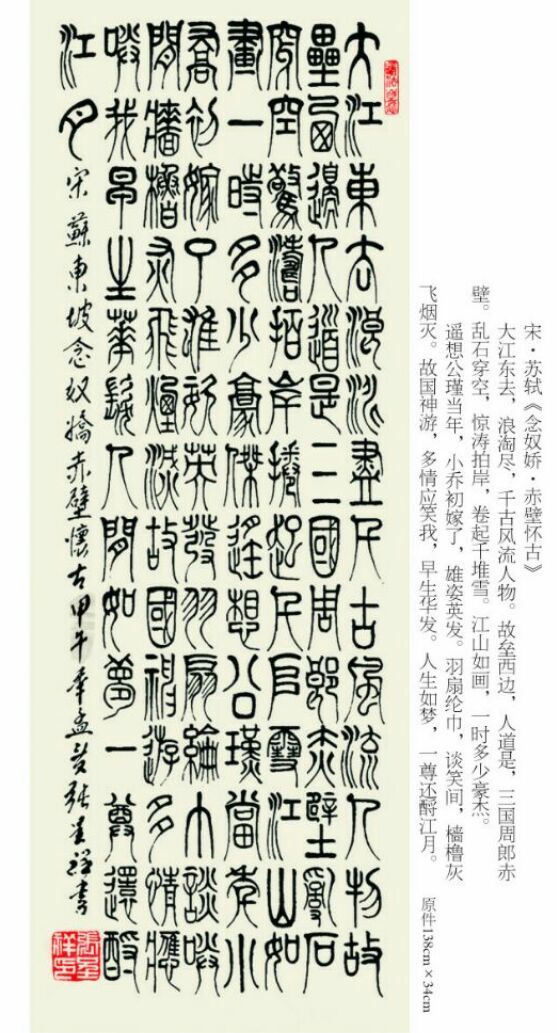 宋·苏轼《念奴娇·赤壁怀古》
大江东去，浪淘尽，千古风流人物。故垒西边，人道是，三国周郎赤
壁。乱石穿空，惊涛拍岸，卷起千堆雪。江山如画，一时多少豪杰。
遥想公瑾当年，小乔初嫁了，雄姿英发。羽扇纶巾，谈笑间，樯橹灰
飞烟灭。故国神游，多情应笑我，早生华发。人生如梦，一尊还酹江月。
原件138cm×34cm
大江東去浪淘盡千古風流人物故
壘西邊人道是三國周郎赤壁亂石
穿空驚濤拍岸捲起千堆雪江山如
畫一時多少豪傑遙想公瑾當年小
喬初嫁了雄姿英發羽扇綸巾談笑
間檣櫓灰飛煙滅故國神遊多情應
笑我早生華髮人間如夢一尊還酹
江月
宋蘇東坡念奴嬌赤壁懷古甲午年孟夏張星祥書
張星祥印